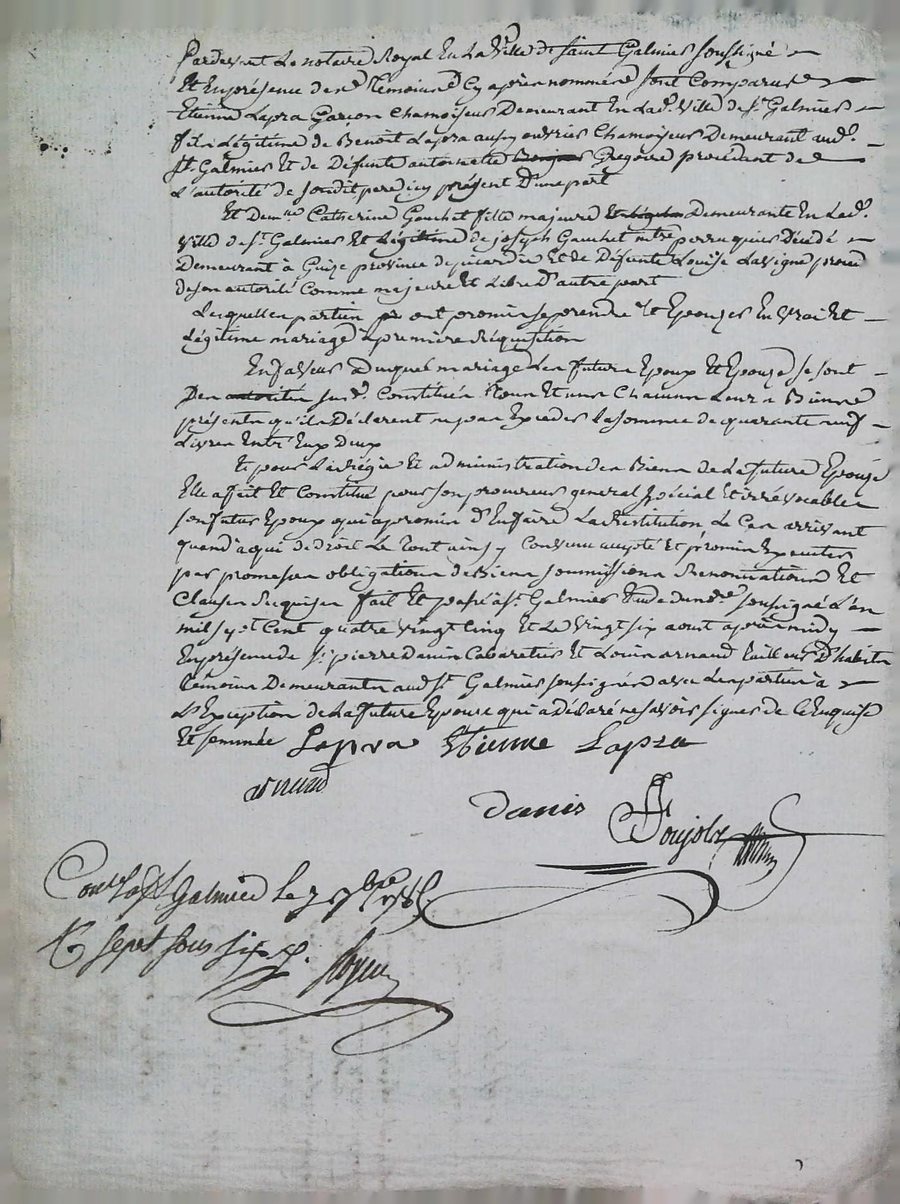 Pardevant Le notaire Royal En La Ville de Saint Galmier soussigné
Et En présence des témoins Cy après nommés sont Comparus
Etienne Lapra Garçon Chamoiseur Demeurant En Lad. Ville de St. Galmier
fils Légitime de Benoit Lapra aussy ouvrier Chamoiseur Demeurant aud.
St. Galmier Et de Défunte antoinette Gregoire procédant de
L'autorité de sondit pere icy présent D'une part
Et Demlle Catherine Gouchet fille majeure Demeurante En Lad.
Ville de St. Galmier Et Légitime de joseph Gauchet mtre perruquier Décédé
Demeurant à Guize province de picardie Et de Défunte Louise Lavigne proced
de son autorité Comme majeure Et Libre D'autre part
Lesquelles parties ont promis se prendre Et Epouzer En vrai Et
Légitime mariage à première Réquisition
En faveur Duquel mariage Les futurs Epoux Et Epouze se sont
Constitués Tous Et uns Chacuns Leurs Biens
présents qu'ils Déclarent ne pas Exceder La somme de quarante neuf
Livres Entr'Eux Deux
Et pour La régie Et administration des Biens de La future Epouze
Elle a fait Et Constitué pour son procureur general spécial Et irrévocable
son futur Epoux qui a promis d'En faire La Restitution Le Cas arrivant
quand à qui de droit Le Tout ainsy Convenu accepté Et promis Executer
par promesses obligations de Biens soumissions Renonciations Et
Clauses Requises fait Et passé à St. Galmier Etude dud. no.re soussigné L'an
mil sept Cent quatre vingt Cinq Et Le vingt six aout après midy
En présence de Sr. pierre danis Cabaretier Et Louis arnaud tailleur D'habits
témoins Demeurants aud. St. Galmier soussignés avec Les parties à
L'Exception de La future Epouze qui a déclaré ne savoir signer de Ce Enquise
Et sommée Lapra Etienne Lapra
arnaud
danis
Galmier le 7 7bre 1785
sept sous six d.